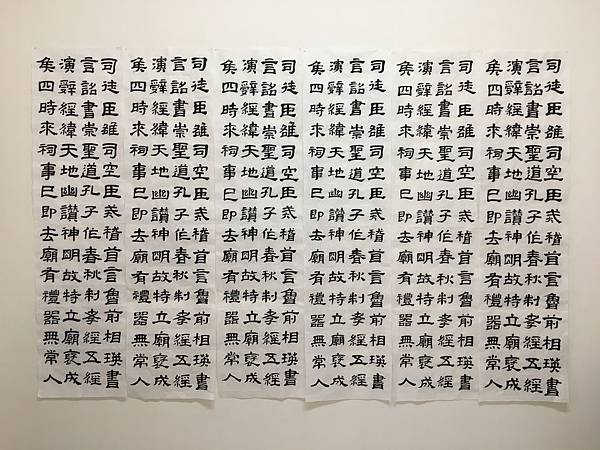 司徒臣雄司空臣戒稽首言魯前相瑛書
言詔書崇聖道孔子作春秋制孝經五經
演辭經緯天地幽讚神明故特立廟褒成
侯四時來祠事已即去廟有禮器無常人
司徒臣雄司空臣戒稽首言魯前相瑛書
言詔書崇聖道孔子作春秋制孝經五經
演辭經緯天地幽讚神明故特立廟褒成
侯四時來祠事已即去廟有禮器無常人
司徒臣雄司空臣戒稽首言魯前相瑛書
言詔書崇聖道孔子作春秋制孝經五經
演辭經緯天地幽讚神明故特立廟褒成
侯四時來祠事已即去廟有禮器無常人
司徒臣雄司空臣戒稽首言魯前相瑛書
言詔書崇聖道孔子作春秋制孝經五經
演辭經緯天地幽讚神明故特立廟褒成
侯四時來祠事已即去廟有禮器無常人
司徒臣雄司空臣戒稽首言魯前相瑛書
言詔書崇聖道孔子作春秋制孝經五經
演辭經緯天地幽讚神明故特立廟褒成
侯四時來祠事已即去廟有禮器無常人
司徒臣雄司空臣戒稽首言魯前相瑛書
言詔書崇聖道孔子作春秋制孝經五經
演辭經緯天地幽讚神明故特立廟褒成
侯四時來祠事已即去廟有禮器無常人